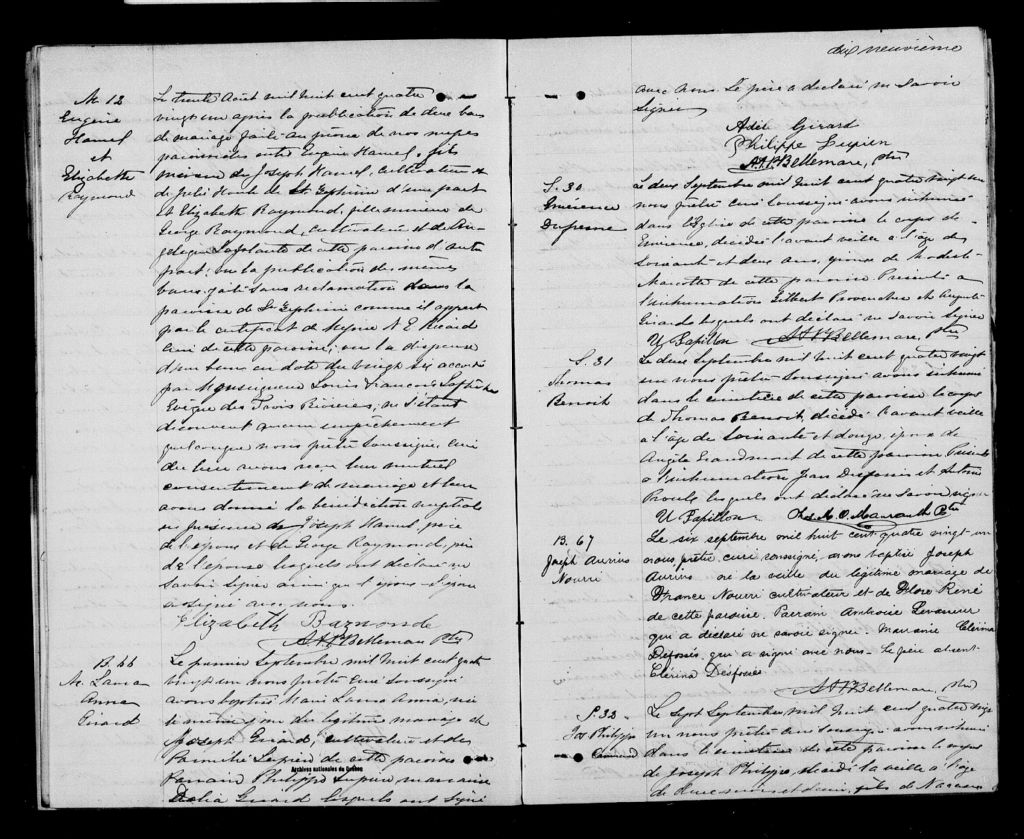 M. 12
Eugène
Hamel
et
Elizabeth
Raymond
Le trente Août mil huit cent quatre
vingt un après la publication de deux bans
de mariage faite au prône de nos messes
paroissiales entre Eugène Hamel, fils
mineur de Joseph Hamel, cultivateur et
de Julie Houle de St Zéphirin d'une part
et Elizabeth Raymond, fille mineure de
George Raymond, cultivateur et de An-
gélique Laplante de cette paroisse d'autre
part; vu la publication des mêmes
bans faite sans réclamation dans la
paroisse de St Zéphirin comme il appert
par le certificat de Messire N. E. Ricard
curé de cette paroisse; vu la dispense
d'un banc en date du vingt six accordé
par Monseigneur Louis François Laflèche
Evêque des Trois Rivières; ne s'étant
découvert aucun empêchement
quelconque nous prêtre soussigné, curé
du lieu avons reçu leur mutuel
consentement de mariage et leur
avons donné la bénédiction nuptiale
en présence de Joseph Hamel, père
de l'époux et de George Raymond, père
de l'épouse lesquels ont déclaré ne
savoir signer ainsi que l'époux. L'épouse
a signé avec nous.
Elizabeth Raymonde
A.H.P. Belleman Ptre
B. 66
M. Laura
Anna
Girard
Le premier Septembre mil huit cent quatre
vingt un nous prêtre curé soussigné
avons baptisé Marie Laura Anna, née
le même jour du légitime mariage de
Joseph Girard, cultivateur et de
Lupien de cette paroisse
Parrain Philippe Lupien marraine
Delia Girard lesquels ont signé
Archives nationales du Québec
dix neuvième
avec nous. Le père a déclaré ne savoir
signer
Adèle Girard
Philippe Lupien
A.H.P. Belleman, Ptre
S. 30
Emérence
Dufresne
Le deux Septembre mil huit cent quatre vingt un
nous prêtre curé soussigné avons inhumé
dans l'Eglise de cette paroisse le corps de
Emérence, décédée l'avant veille à l'âge de
soixante et deux ans, épouse de Modeste
Marcotte de cette paroisse Présents à
l'inhumation Gilbert Provencher et
Girard lesquels ont déclaré ne savoir signer
U Papillon A.H.P. Belleman, Ptre
S. 31
Thomas
Benoit
Le deux Septembre mil huit cent quatre vingt
un nous prêtre soussigné avons inhumé
dans le cimetière de cette paroisse le corps
de Thomas Benoit, décédé l'avant veille
à l'âge de soixante et douze, époux de
Angèle Grandmont de cette paroisse Présents
à l'inhumation Jean et Antoine
Proulx lesquels ont déclaré ne savoir signer
U Papillon Ptre
B. 67
Joseph Aurius
Nourri
Le six septembre mil huit cent quatre vingt-un
nous prêtre curé, soussigné, avons baptisé Joseph
Aurius né la veille du légitime mariage de
France Nourri cultivateur et de Flore René
de cette paroisse. Parrain Anthoine Levasseur
qui a déclaré ne savoir signer. Marraine Clérina
Desfossés, qui a signé avec nous. Le père absent.
Clérina Desfossés
A.H.P. Belleman, Ptre
S. 32
Jos Philippe
Le Sept Septembre mil huit cent quatre vingt
un nous prêtre curé soussigné avons inhumé
dans le cimetière de cette paroisse le corps
de Joseph Philippe, décédé la veille à l'âge
de deux mois et demi, fils de